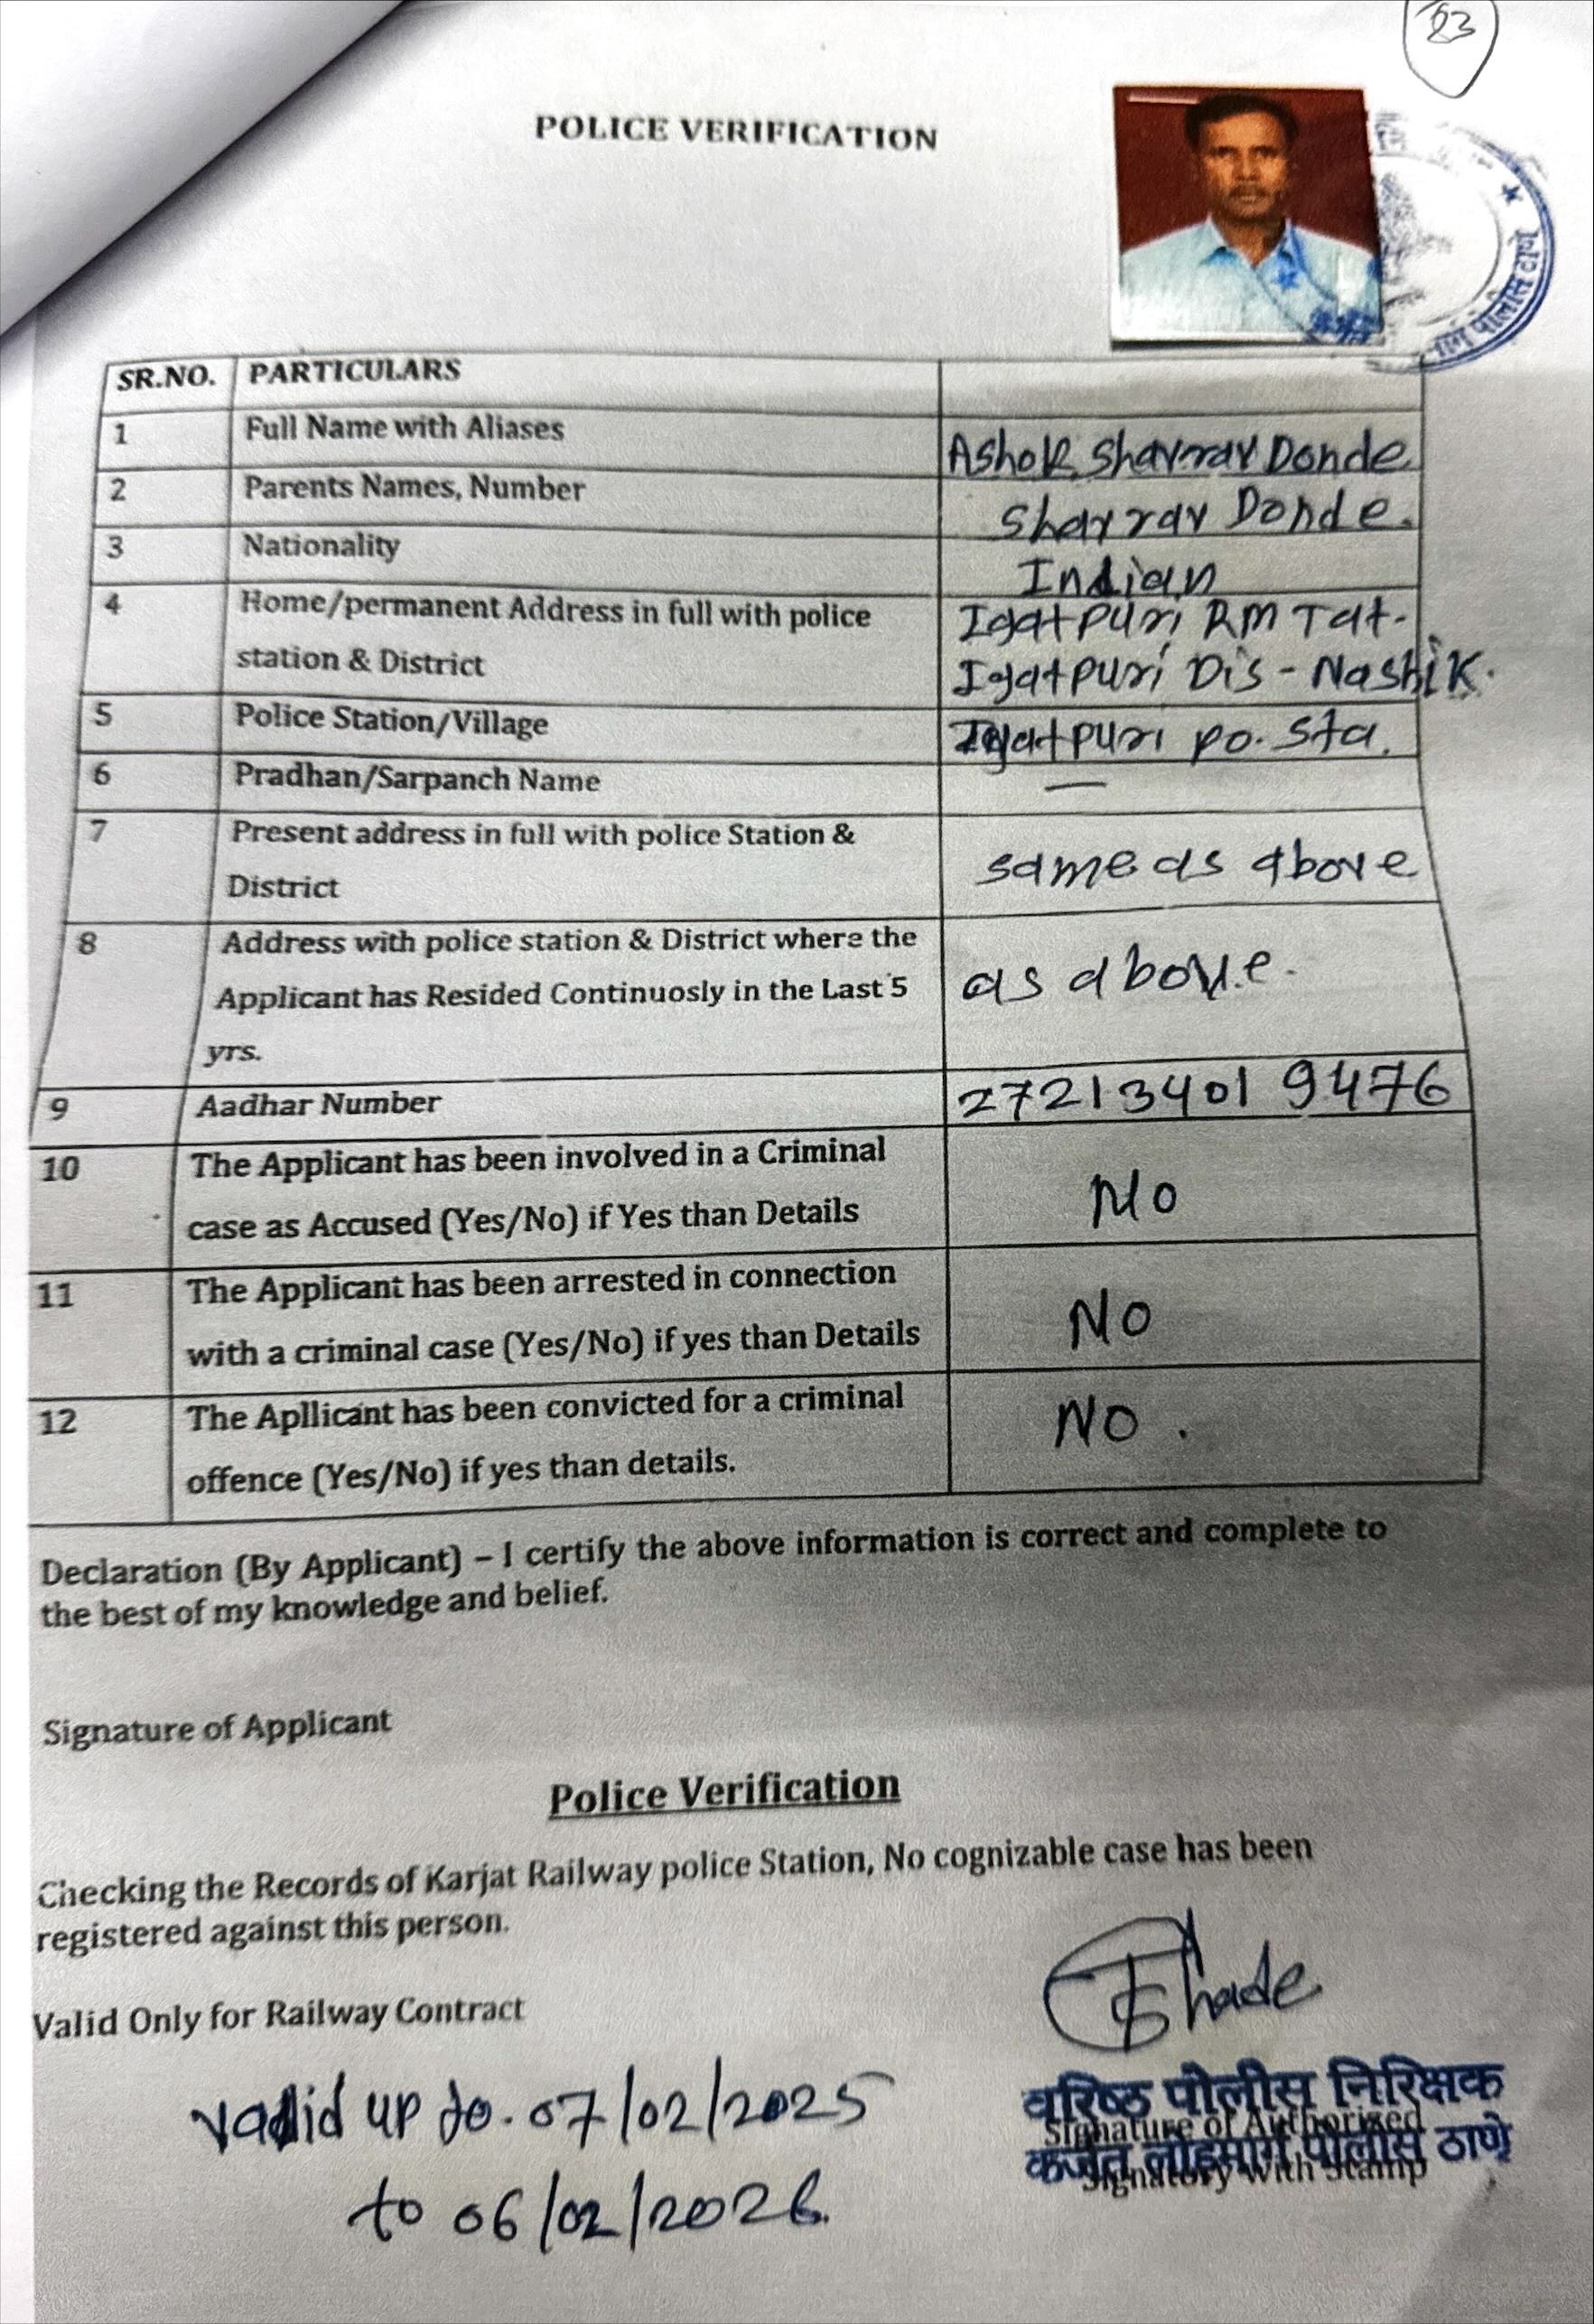 23
POLICE VERIFICATION
पोलीस ठाणे
SR.NO. PARTICULARS
1 Full Name with Aliases Ashok Shavrav Donde
2 Parents Names, Number Shavrav Donde.
3 Nationality Indian
4 Home/permanent Address in full with police Igatpuri RM Tat-
station & District Igatpuri Dis - Nashik.
5 Police Station/Village Igatpuri po. Sta.
6 Pradhan/Sarpanch Name —
7 Present address in full with police Station &
District same as above
8 Address with police station & District where the
Applicant has Resided Continuosly in the Last 5 as above.
yrs.
9 Aadhar Number 27213401 9476
10 The Applicant has been involved in a Criminal
case as Accused (Yes/No) if Yes than Details No
11 The Applicant has been arrested in connection
with a criminal case (Yes/No) if yes than Details No
12 The Apllicant has been convicted for a criminal NO.
offence (Yes/No) if yes than details.
Declaration (By Applicant) – I certify the above information is correct and complete to
the best of my knowledge and belief.
Signature of Applicant
Police Verification
Checking the Records of Karjat Railway police Station, No cognizable case has been
registered against this person.
Valid Only for Railway Contract
valid up to. 07/02/2025
to 06/02/2026
वरिष्ठ पोलीस निरिक्षक
Signature of Authorized
कर्जत लोहमार्ग पोलीस ठाणे
Signatory with Stamp